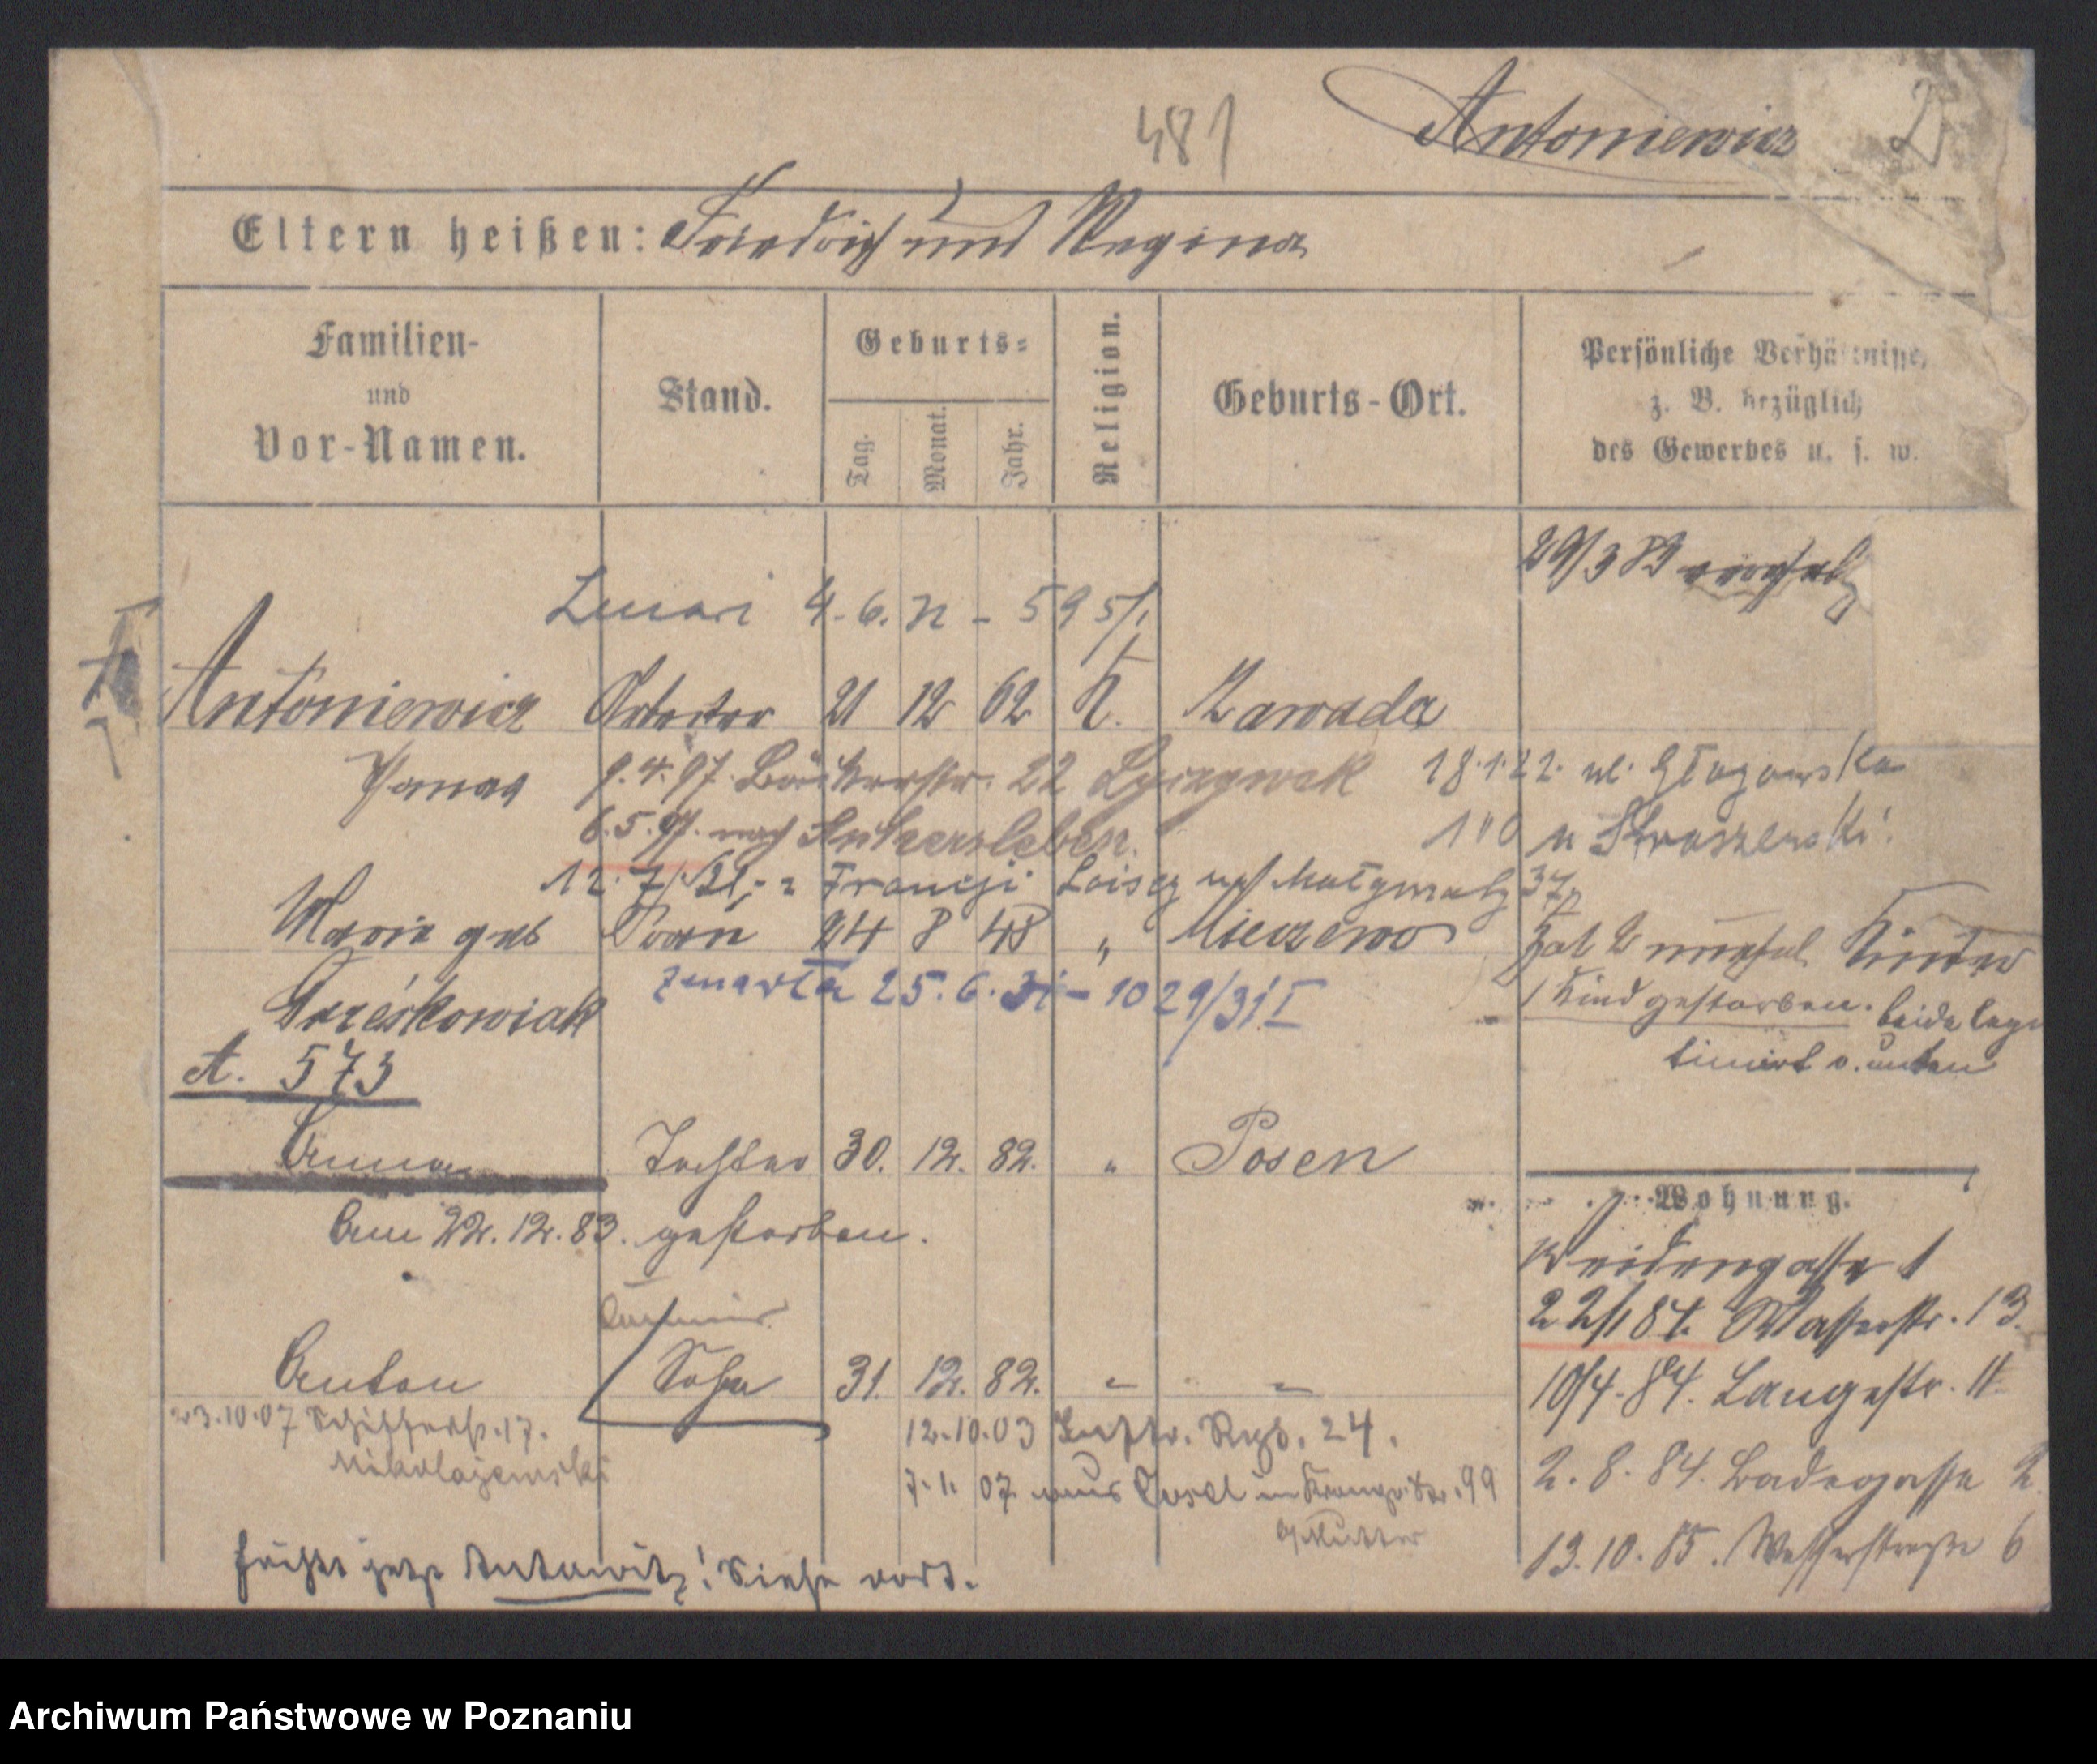 481
Antoniewicz
2
Eltern heißen: Friedrich und Regina
Familien- und Vor-Namen.
Stand.
Geburts=
Tag.
Monat.
Jahr.
Religion.
Geburts-Ort.
Persönliche Verhältnisse,
z. B. bezüglich
des Gewerbes u. s. w.
29/3 83
4. 6. 595/
Antoniewicz Arbeiter 21 12 62 K. Zawada
9. 4. 97. Bäckerstr. 22
18.1.22. ul. Głogowska
6.5.97. nach
100 u Straszewski
12. 7/
37
Maria geb Frau 24 8 48 „ Mieczewo
Hat 2 unehel. Kinder
zmarła 25. 6. 31 - 1029/31 I
1 Kind gestorben. beide legi
timirt s. unten
A. 573
Anna Tochter 30. 12. 82. " Posen
Am 22. 12. 83. gestorben.
Wohnung.
Weidengasse 1
22/1 84. Wasserstr. 13.
Anton Sohn 31. 12. 82. " "
10/4. 84. Langestr. 11.
23.10.07 Schifferstr. 17.
12.10.03
24.
Mikolajewski
7. 1. 07 aus
99
2. 8. 84. Badegasse 2.
Mutter
13. 10. 85. Wasserstraße 6
heißt jetzt Antowitz! Siehe dort.
Archiwum Państwowe w Poznaniu